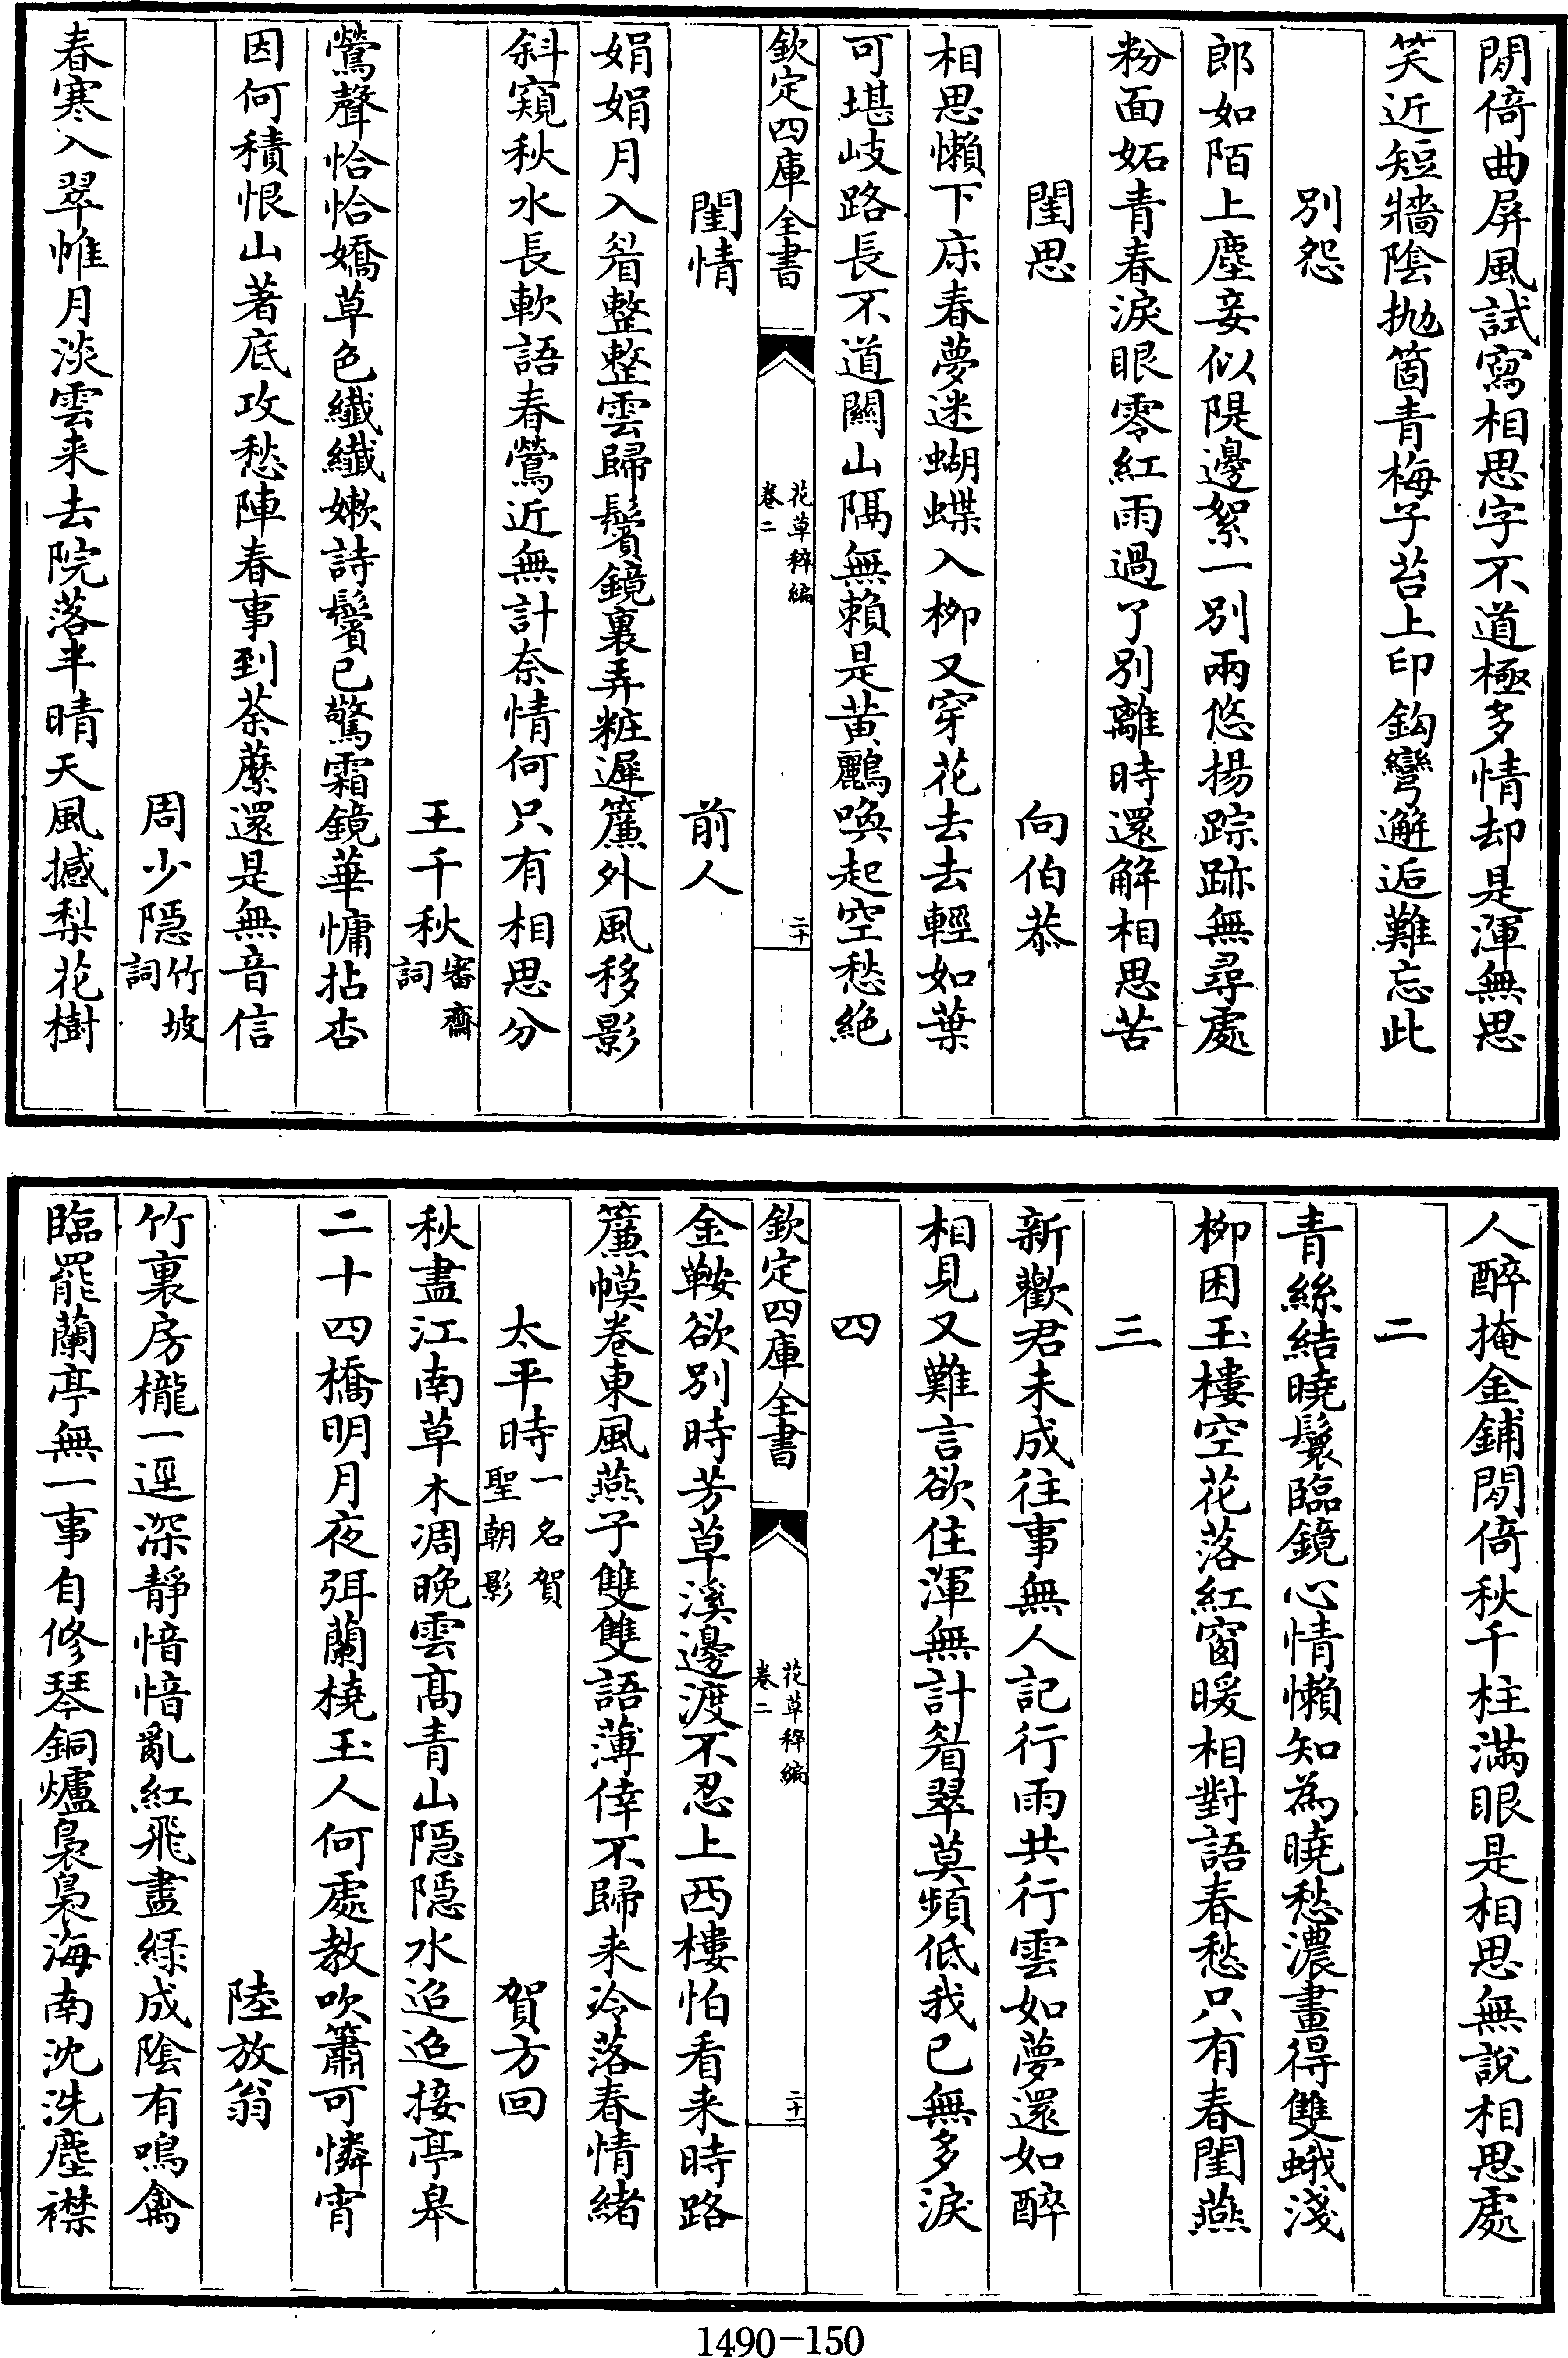 閒倚曲屏風試寫相思字不道極多情却是渾無思
笑近短牆陰抛箇青梅子苔上印鈎彎邂逅難忘此
别怨
郎如陌上塵妾似隄邊絮一别兩悠揚踪跡無尋處
粉面妬青春淚眼零紅雨過了别離時還解相思苦
閨思　向伯恭
相思懶下床春夢迷蝴蝶入柳又穿花去去輕如葉
可堪岐路長不道關山隔無賴是黃鸝喚起空愁絶
欽定四庫全書
花草稡編
卷二
二十
閨情　前人
娟娟月入眉整整雲歸鬢鏡裏弄粧遲簾外風移影
斜窺秋水長軟語春鶯近無計奈情何只有相思分
王千秋審齋詞
鶯聲恰恰嬌草色纖纖嫩詩鬢已驚霜鏡華慵拈杏
因何積恨山著底攻愁陣春事到荼蘼還是無音信
周少隠竹坡詞
春寒入翠帷月淡雲来去院落半晴天風撼梨花樹
人醉掩金鋪閒倚秋千柱滿眼是相思無說相思處
二
青絲結曉鬟臨鏡心情懶知為曉愁濃畫得雙蛾淺
柳困玉樓空花落紅窗暖相對語春愁只有春閨燕
三
新歡君未成往事無人記行雨共行雲如夢還如醉
相見又難言欲住渾無計眉翠莫頻低我已無多淚
四
金鞍欲别時芳草溪邊渡不忍上西樓怕看来時路
簾幙卷東風燕子雙雙語薄倖不歸来冷落春情緒
欽定四庫全書
花草稡編
卷二
二十一
太平時一名賀聖朝影　賀方回
秋盡江南草木凋晚雲髙青山隠隠水迢迢接亭皋
二十四橋明月夜弭蘭橈玉人何處教吹簫可憐宵
陸放翁
竹裏房櫳一逕深靜愔愔亂紅飛盡緑成陰有鳴禽
臨罷蘭亭無一事自修琴銅爐裊裊海南沈洗塵襟
1490-150